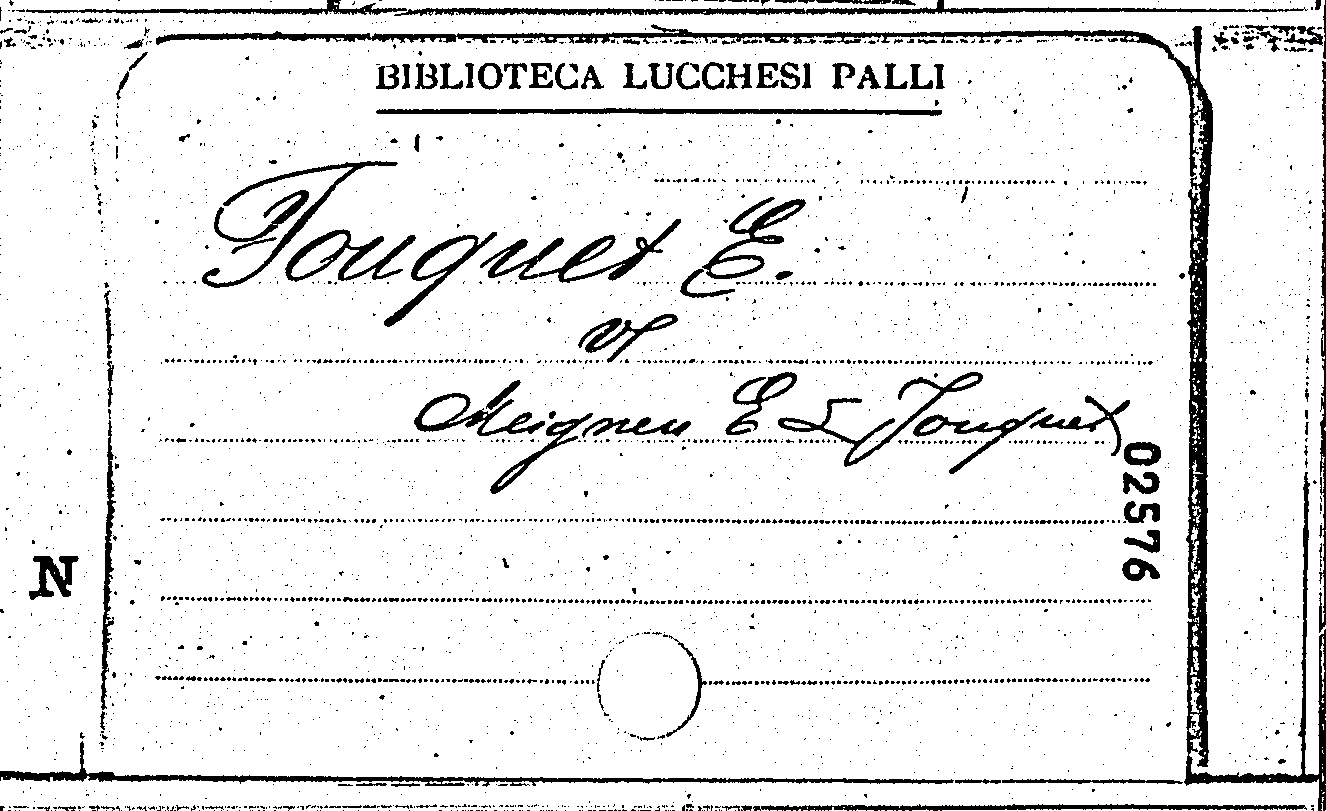 BIBLIOTECA LUCCHESI PALLI
Fouquet E.
vf
Meignen E & Fouquet
02576
N